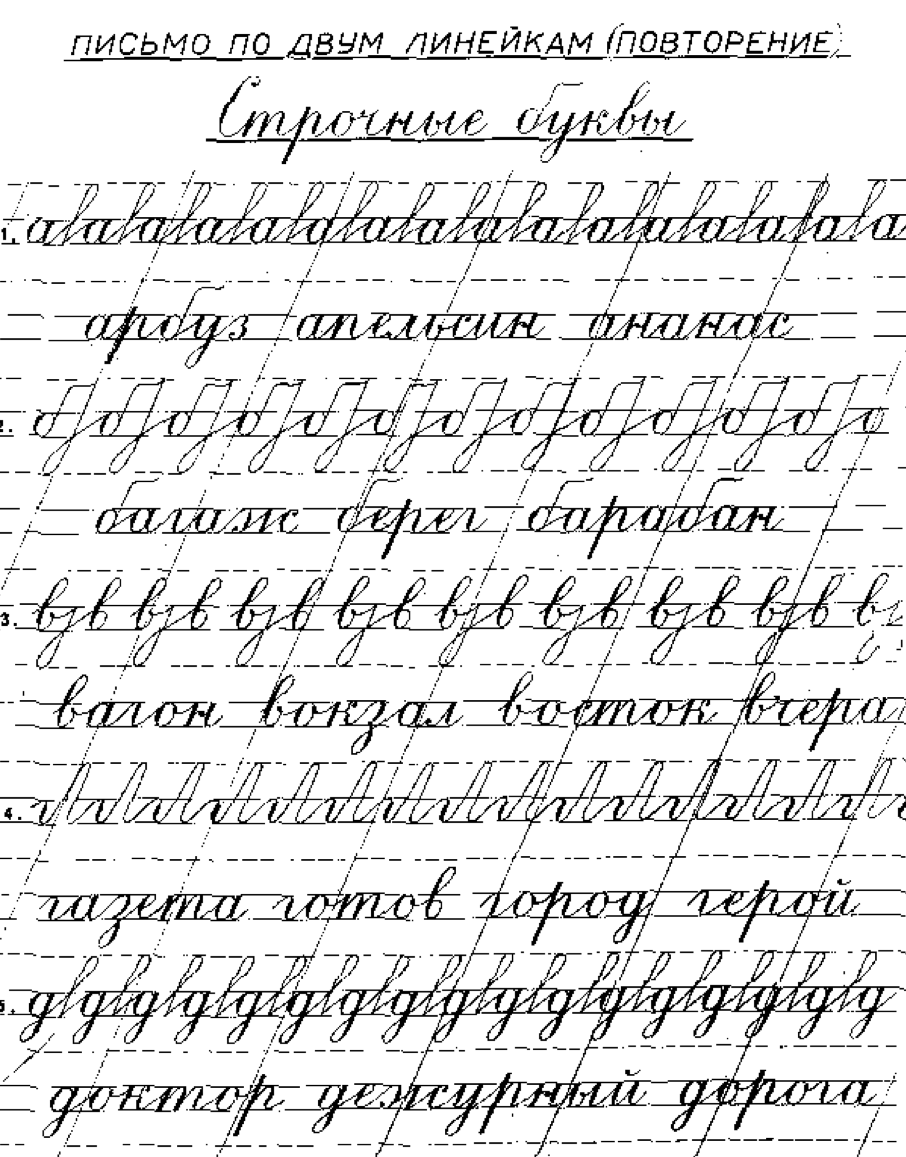 ПИСЬМО ПО ДВУМ ЛИНЕЙКАМ (ПОВТОРЕНИЕ)
Строчные буквы
1.
арбуз апельсин ананас
2.
багаж берег барабан
3. в в в в в в в в в в в в в в в в в
вагон вокзал восток вчера
4.
газета готов город герой
5.
доктор дежурный дорога